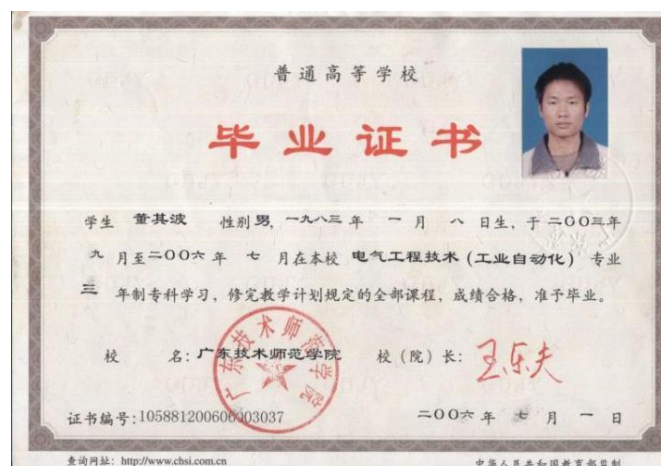 普通高等学校
毕业证书
学生 董其波 性别 男, 一九八三 年 一 月 八 日生, 于 二〇〇三年
九 月至 二〇〇六 年 七 月在本校 电气工程技术(工业自动化) 专业
三 年制专科学习, 修完教学计划规定的全部课程, 成绩合格, 准予毕业。
校 名: 广东技术师范学院 校(院)长: 王乐夫
广东技术师范学院
证书编号: 105881200606003037 二〇〇六 年 七 月 一 日
查询网址: http://www.chsi.com.cn 中华人民共和国教育部监制